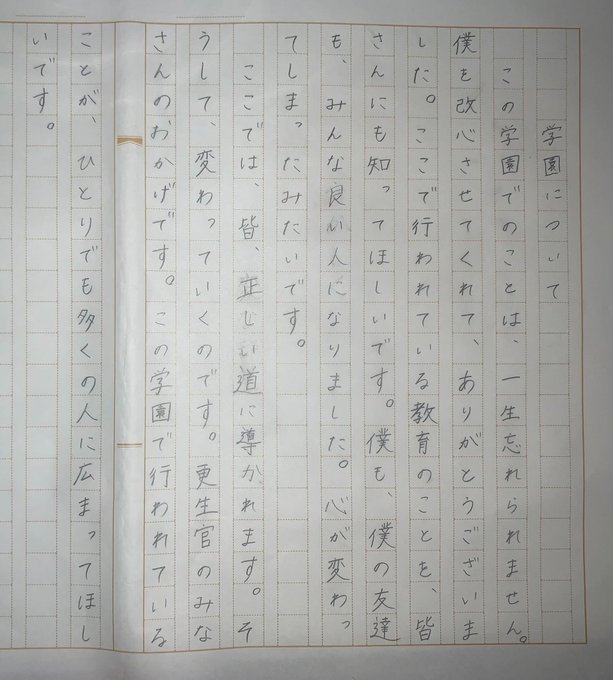 学園について
この学園でのことは、一生忘れられません。
僕を改心させてくれて、ありがとうございま
した。ここで行われている教育のことを、皆
さんにも知ってほしいです。僕も、僕の友達
も、みんな良い人になりました。心が変わっ
てしまったみたいです。
ここでは、皆、正しい道に導かれます。そ
うして、変わっていくのです。更生官のみな
さんのおかげです。この学園で行われている
ことが、ひとりでも多くの人に広まってほし
いです。